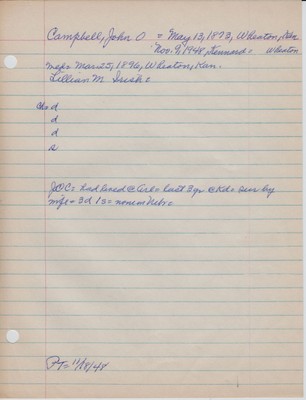 Campbell, John O = May 13, 1873, Wheaton, Kan
Nov. 9, 1948, Kennard = Wheaton
med = Mar 25, 1896, Wheaton, Kan.
Lillian M. Irish =
Chs d
d
d
s
JOC = had lived @ Arl = last 3 yr @ Kd = surv by
mfe = 3d 1s = none in Nebr =
PT = 11/18/48